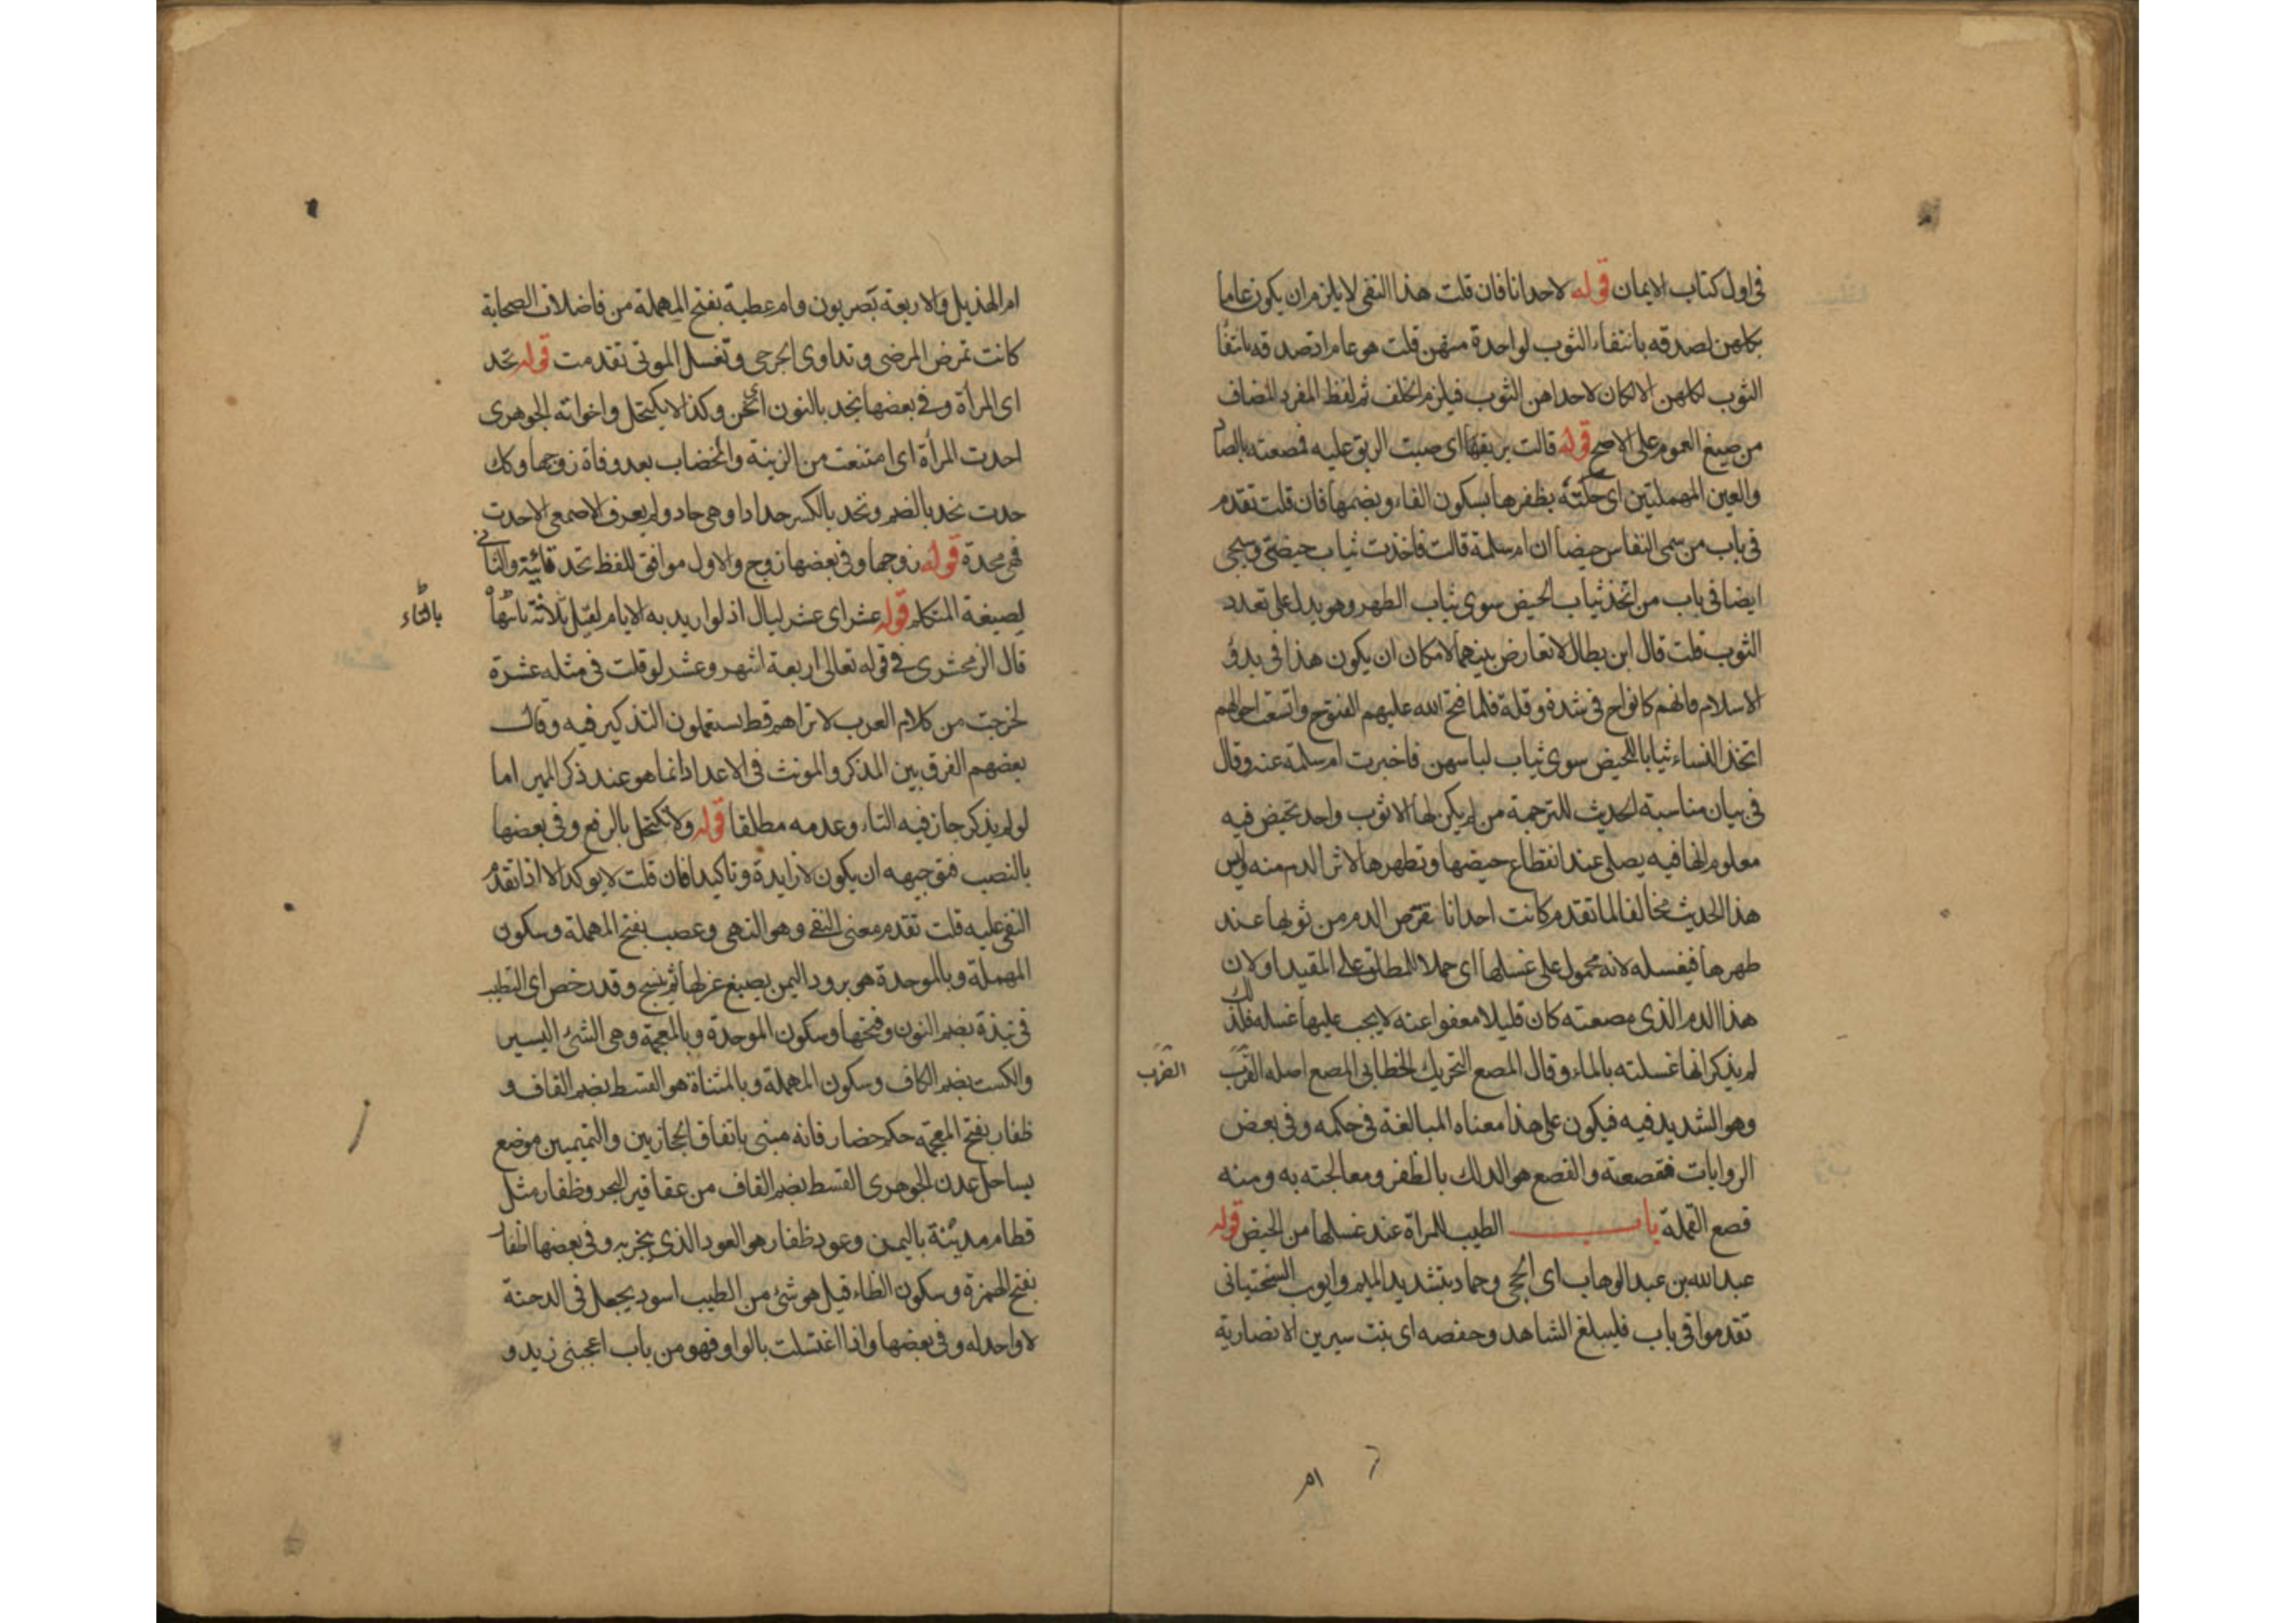 فى اول كتاب الايمان قوله لاحدانا فان قلت هذا النفى لا يلزم ان يكون عاما
بكلهن لصدقه بانتفاء الثوب لواحدة منهن قلت هو عام اذ صدقه بانتفا
الثوب لكلهن والا لكان لاحداهن الثوب فيلزم الخلف ثم لفظ المفرد المضاف
من صيغ العموم على الاصح قوله قالت بريقها اى صبت الريق عليه فمصعته بالصاد
والعين المهملتين اى حكته بظفرها بسكون الفاء وبضمها فان قلت تقدم
فى باب من سمى النفاس حيضا ان ام سلمة قالت فاخذت ثياب حيضتى وسيجى
ايضا فى باب من اتخذ ثياب الحيض سوى ثياب الطهر وهو يدل على تعدد
الثوب قلت قال ابن بطال لا تعارض بينهما لامكان ان يكون هذا فى بدؤ
الاسلام فانهم كانوا ح فى شدة وقلة فلما فتح الله عليهم الفتوح واتسعت احوالهم
اتخذ النساء ثيابا للحيض سوى ثياب لباسهن فاخبرت ام سلمة عنه وقال
فى بيان مناسبة الحديث للترجمة من لم يكن لها الا ثوب واحد تحيض فيه
معلوم انها فيه يصلى عند انقطاع حيضها وتطهرها لاثر الدم منه وليس
هذا الحديث مخالفا لما تقدم كانت احدانا تقترص الدم من ثوبها عند
طهرها فيغسله لانه محمول على غسلها اى حملا للمطلق على المقيد او لان
هذا الدم الذى مصعته كان قليلا معفوا عنه لا يجب عليها غسله فلذلك
لم يذكر انها غسلته بالماء وقال المصع التحريك الخطابى المصع اصله الضرب
الضرب
وهو الشديد فيه فيكون على هذا معناه المبالغة فى حكمه وفى بعض
الروايات فقصعته والقصع هو الدلك بالظفر ومعالجته به ومنه
قصع القملة باب الطيب للمراة عند غسلها من الحيض قوله
عبد الله بن عبد الوهاب اى الحجى وحماد بتشديد الميم وايوب السختيانى
تقدموا فى باب فليبلغ الشاهد وحفصه اى بنت سيرين الانصارية
ام الهذيل والاربعة بصريون وام عطية بفتح المهملة من فاضلات الصحابة
كانت تمرض المرضى وتداوى الجرحى وتغسل الموتى تقدمت قوله تحد
اى المراة وفى بعضها نحد بالنون اى نحن وكذا لا يكتحل واخواته الجوهرى
احدت المرأة اى امتنعت من الزينة والخضاب بعد وفاة زوجها وكك
حدت تحد بالضم وتحد بالكسر حدادا وهى حاد ولم يعرف الاصمعى الا احدت
فهى محدة قوله زوجها وفى بعضها زوج والاول موافق للفظ تحد غائبة والثانى
لصيغة المتكلم قوله عشرا اى عشر ليال اذ لو اريد به الايام لقيل ثلاثة بالتاء
بالتاء
قال الزمخشرى فى قوله تعالى اربعة اشهر وعشر لو قلت فى مثله عشرة
لخرجت من كلام العرب لا تراهم قط يستعملون التذكير فيه وقال
بعضهم الفرق بين المذكر والمونث فى الاعداد انما هو عند ذكر المميز اما
لو لم يذكر جاز فيه التاء وعدمه مطلقا قوله ولا نكتحل بالرفع وفى بعضها
بالنصب فتوجيهه ان يكون لا زايدة وتاكيدا فان قلت لا يوكد الا اذا تقدم
النفى عليه قلت تقدم معنى النفى وهو النهى وعصب بفتح المهملة وسكون
المهملة وبالموحدة هو برود اليمن يصبغ غزلها ثم ينسج وقد رخص اى التطيب
فى نبذة بضم النون وفتحها وسكون الموحدة وبالمعجمة وهى الشئ اليسير
والكست بضم الكاف وسكون المهملة وبالمثناة هو القسط بضم القاف و
ظفار بفتح المعجمة حكم حضار فانه مبنى باتفاق الحجازيين والتميميين موضع
بساحل عدن الجوهرى القسط بضم القاف من عقاقير البحر وظفار مثل
قطام مدينة باليمن وعود ظفار هو العود الذى يبخر به وفى بعضها اظفار
بفتح الهمزة وسكون الظاء قيل هو شئ من الطيب اسود يجعل فى الدخنة
لا واحد له وفى بعضها واذا اغتسلت بالواو فهو من باب اعجبنى زيد و